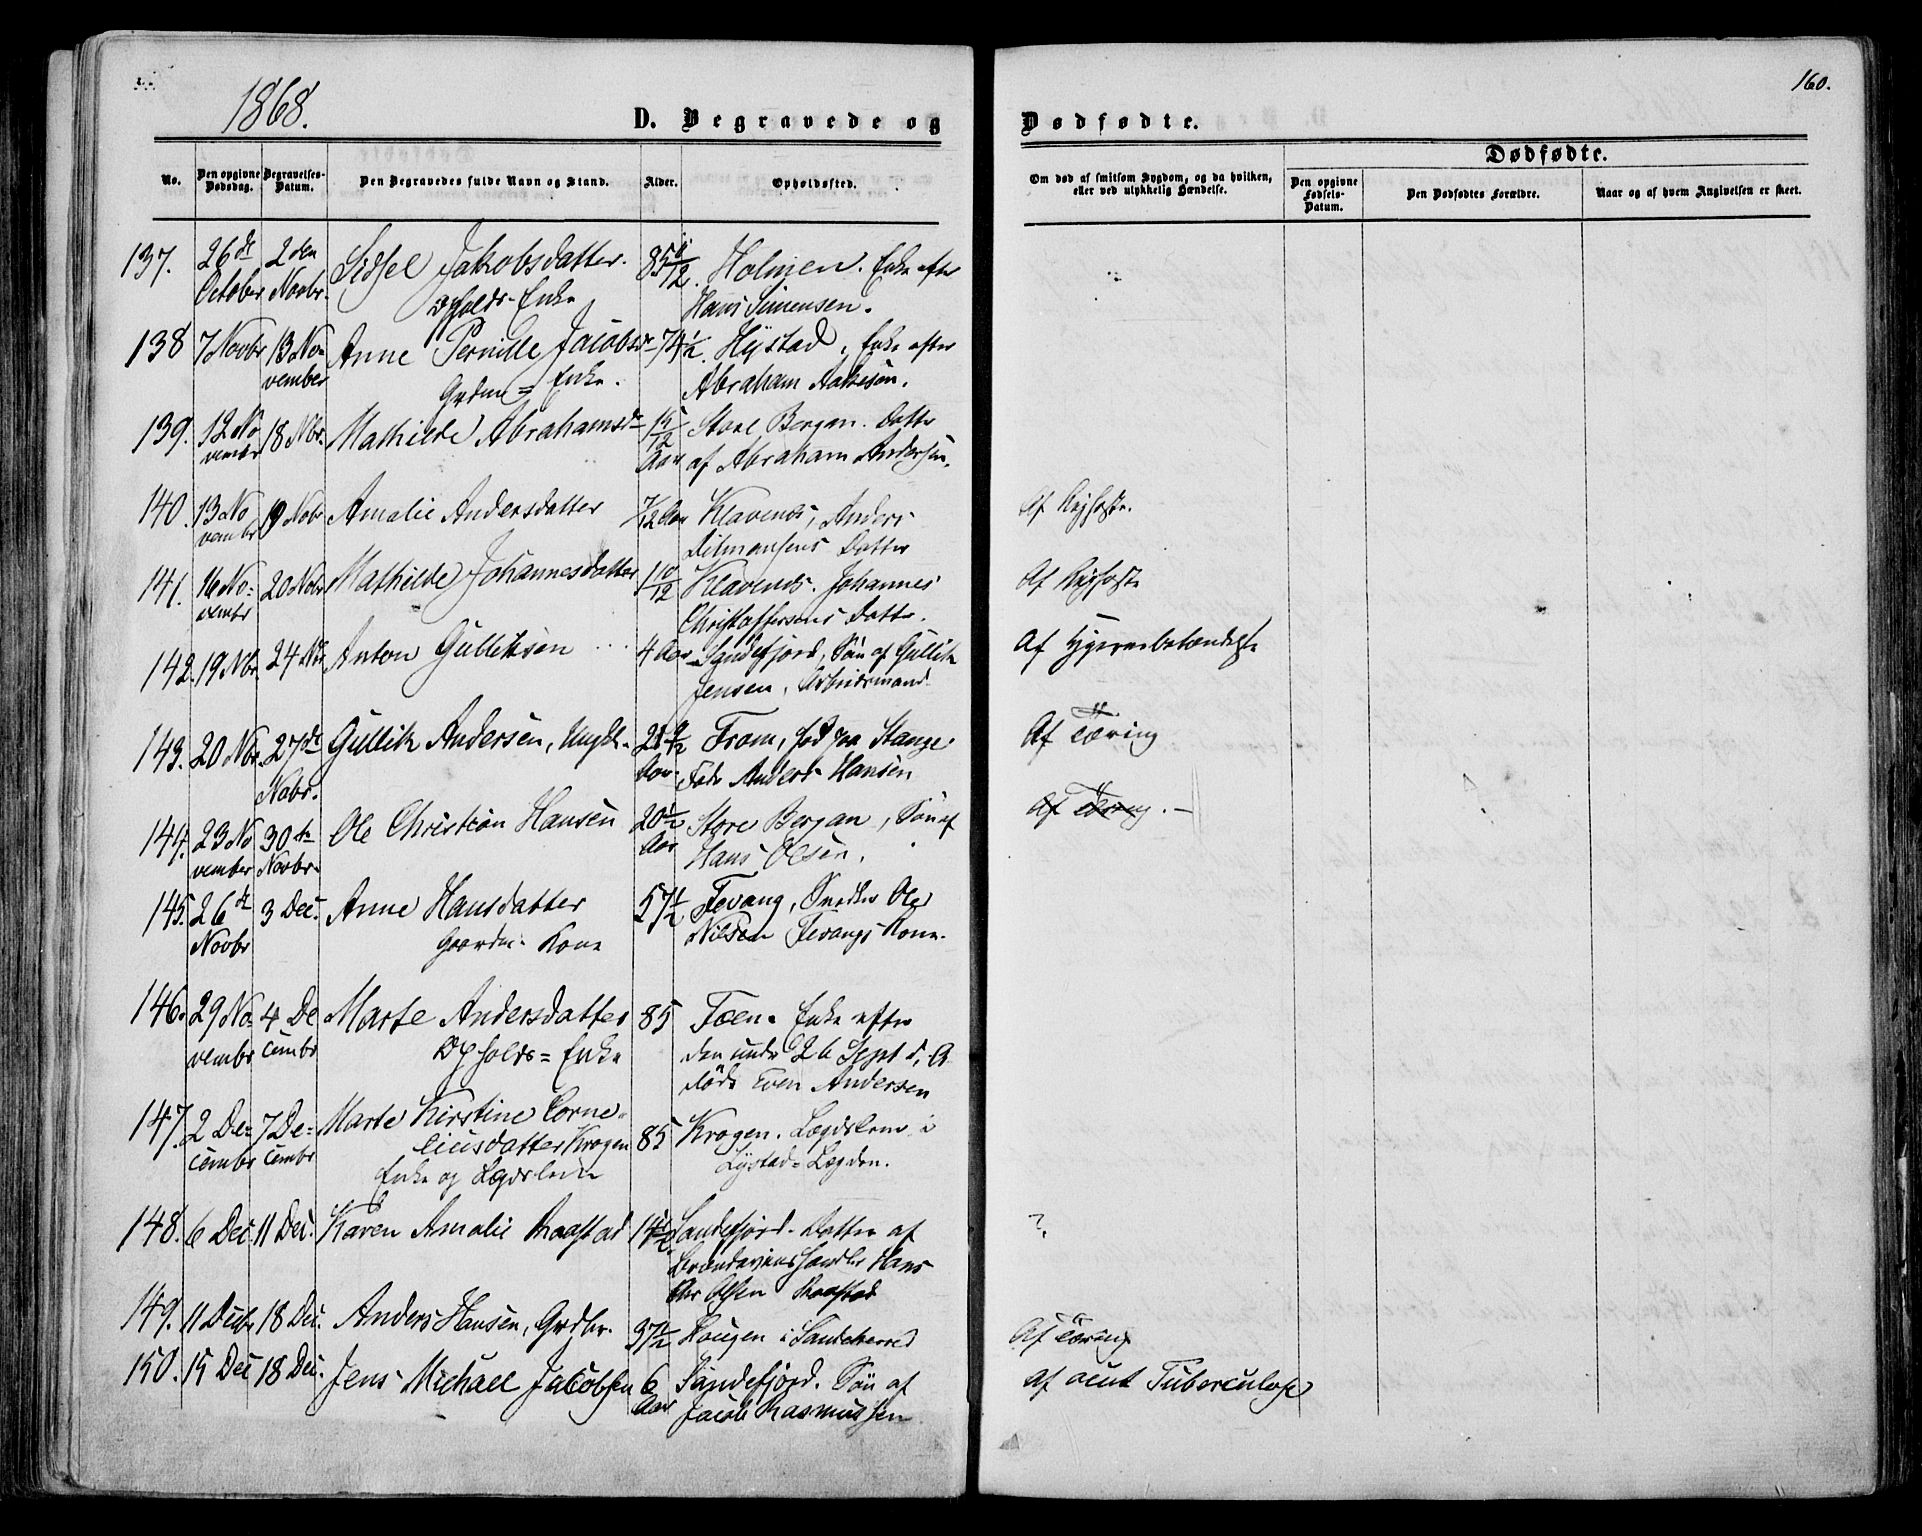 1868.
160.
D. Begravede og Dødfødte.
Dødfødte.
No.
Den opgivne Dødsdag.
Begravelses-Datum.
Den Begravedes fulde Navn og Stand.
Alder.
Opholdssted.
Om død af smitsom Sygdom, og da hvilken, eller ved ulykkelig Hændelse.
Den opgivne Fødsels-Datum.
Den Dødfødtes Forældre.
Naar og af hvem Angivelsen er skeet.
137. 26de 2den Sidsel Jakobsdatter. 85 Holmen. Enke efter
October Novbr. Enke Hans Simensen.
138 7 Novbr 13 No- Anne Pernille Jacobsd- 74½. Hystad, Enke efter
vember Grdm= Enke. Abraham
139. 12 No 18 Nbr. Mathilde Abrahamsd- Store Bergan. Datter
vembr Aar af Abraham Andersen.
140. 13 No 19 Nobr Amalie Andersdatter 7/12 Aar Klavenes, Anders Af
vembr Datter
141. 16 No- 20 Nobr Mathilde Johannesdatter 1 10/12 Klavenes. Johannes Af
vembr Christoffersens Datter.
142. 19 Nbr. 24 Nbr Anton Gulliksen 4 Aar Sandefjord, Søn af Gullik Af Hjernebetændelse
Jensen, Arbeidsmand
143. 20 Nbr. 27de Gullik Andersen, Ungk. Fra Stange Af Tæring
Novbr. Aar Anders Hansen
144. 23 No 30te Ole Christian Hansen 20½ Store Bergan, Søn af Af Tæring. –
vember Novbr. Aar Hans Olsen.
145. 26de 3 Dec. Anne Hansdatter 57½ Fevang, Ole
Novbr Gaardm. Kone Nilsen Fevangs Kone.
146. 29 No- 4 De Marte Andersdatter 85 Foen. Enke efter
vembr cembr Enke den under 26 Sept d. A.
døde Even Andersen
147. 2 De- 7 De- Marte Kirstine Corne-
cembr cembr liusdatter Krogen 85 Krogen. Lægdslem i
Enke og Lægdslem Lystad= Lægden.
148. 6 Dec. 11 Dec. Karen Amalie Raastad 14½ Sandefjord. Datter af ?
Brændevinshandler Hans
Olsen Raastad
149. 11 Decbr 18 Dec. Anders Hansen, Grdbr. 37½ Haugen i Sandeherred Af Tæring
150. 15 Dec 18 Dec. Jens Michael Jacobsen 6 Sandefjord. Søn af Af acut Tuberculose
Aar Jacob Rasmussen